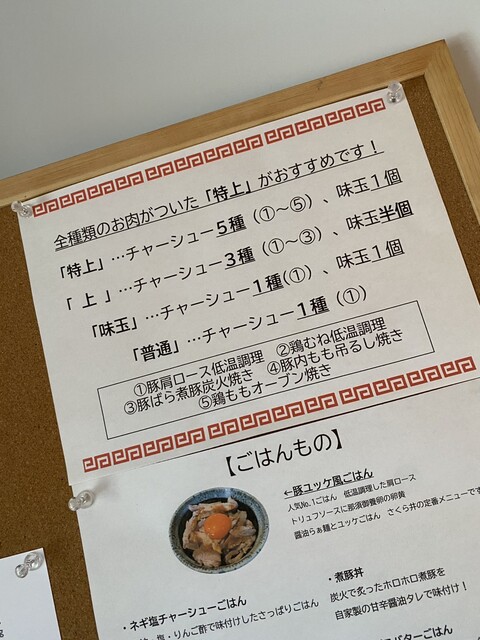 全種類のお肉がついた「特上」がおすすめです！
「特上」…チャーシュー５種（①～⑤）、味玉１個
「 上 」…チャーシュー３種（①～③）、味玉半個
「味玉」…チャーシュー１種(①）、味玉１個
「普通」…チャーシュー１種（①）
①豚肩ロース低温調理　②鶏むね低温調理
③豚ばら煮豚炭火焼き　④豚内もも吊るし焼き
⑤鶏ももオーブン焼き
【ごはんもの】
←豚ユッケ風ごはん
人気No.1ごはん　低温調理した肩ロース
トリュフソースに那須御養卵の卵黄
醤油らぁ麺とユッケごはん　さくら井の定番メニューです
・ネギ塩チャーシューごはん
塩・りんご酢で味付けしたさっぱりごはん
・煮豚丼
炭火で炙ったホロホロ煮豚を
自家製の甘辛醤油タレで味付け！
バターごはん